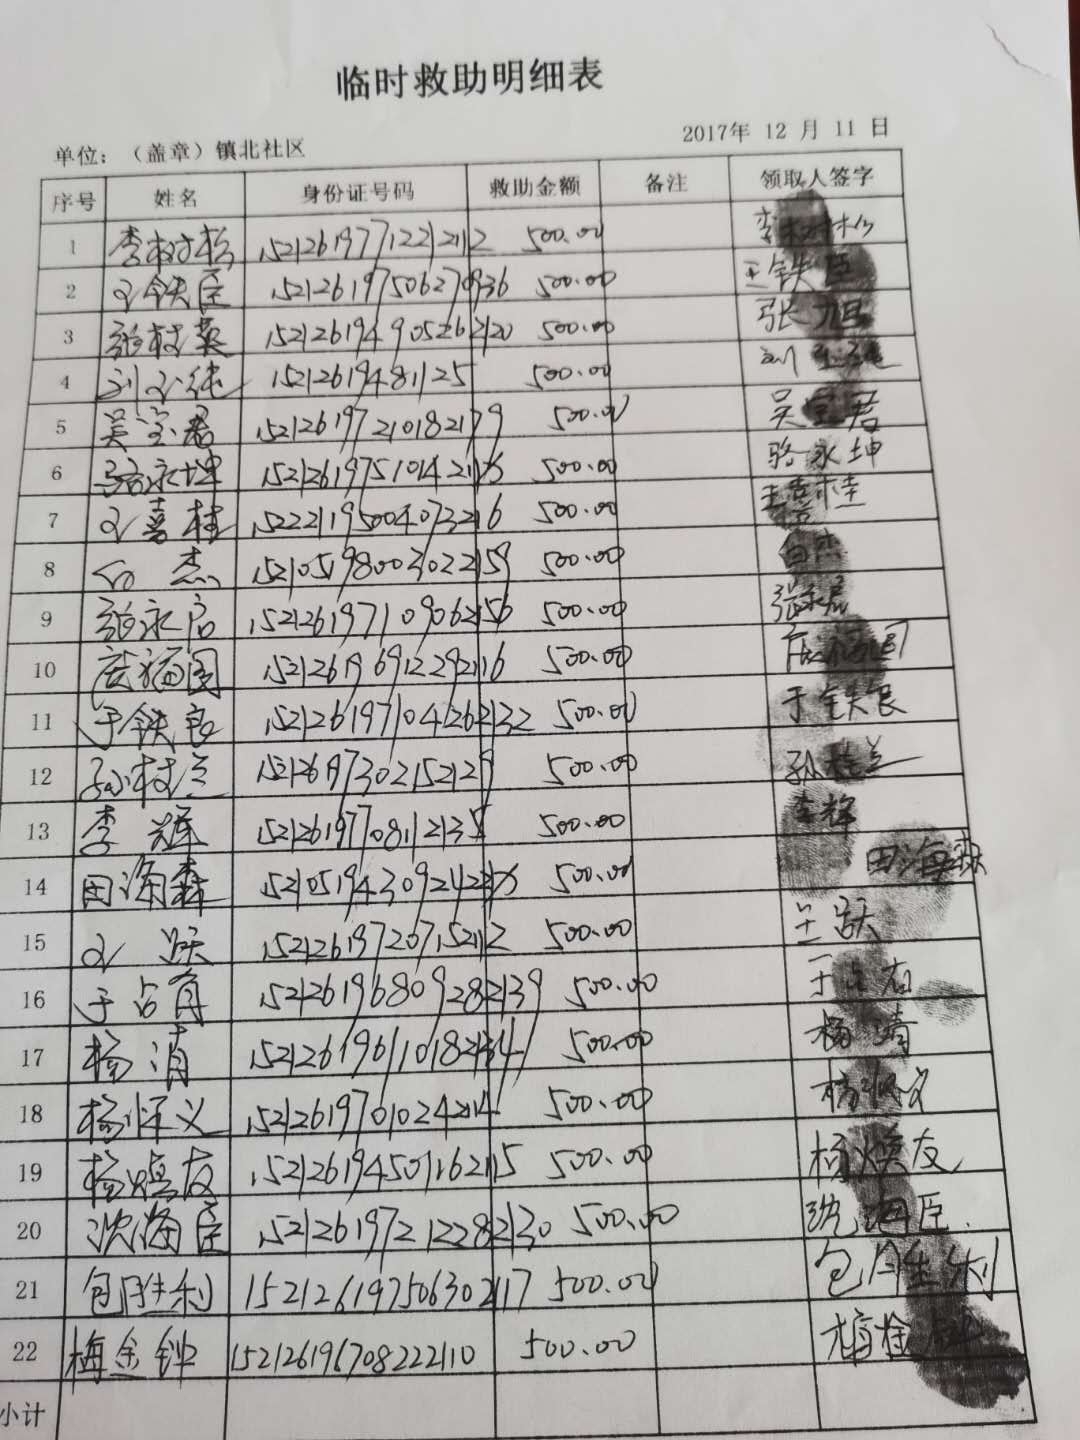 临时救助明细表
单位：（盖章）镇北社区 2017年 12 月 11 日
序号 姓名 身份证号码 救助金额 备注 领取人签字
1 李树松 152126197712212112 500.00 李树松
2 王铁臣 500.00 王铁臣
3 152126194905262120 500.00 张旭
4 15212619481125 500.00 刘
5 吴宝君 152126197210182179 500.00 吴宝君
6 骆永坤 15212619751014211X 500.00 骆永坤
7 王喜桂 152221195004073216 500.00 王喜桂
8 白杰 152105198003022159 500.00 白杰
9 张永启 152126197109062156 500.00 张永启
10 152126196912292116 500.00
11 于铁良 152126197104262132 500.00 于铁良
12 孙桂兰 500.00 孙桂兰
13 李辉 500.00 李辉
14 田海森 500.00 田海森
15 王跃 152126197207152112 500.00 王跃
16 于占有 152126196809282139 500.00 于占有
17 杨清 500.00 杨清
18 杨怀义 500.00
19 杨焕友 152126194501162115 500.00 杨焕友
20 沈海臣 152126197212282130 500.00 沈海臣
21 包胜利 152126197506302117 500.00 包胜利
22 梅金钟 152126196708222110 500.00 梅金钟
小计